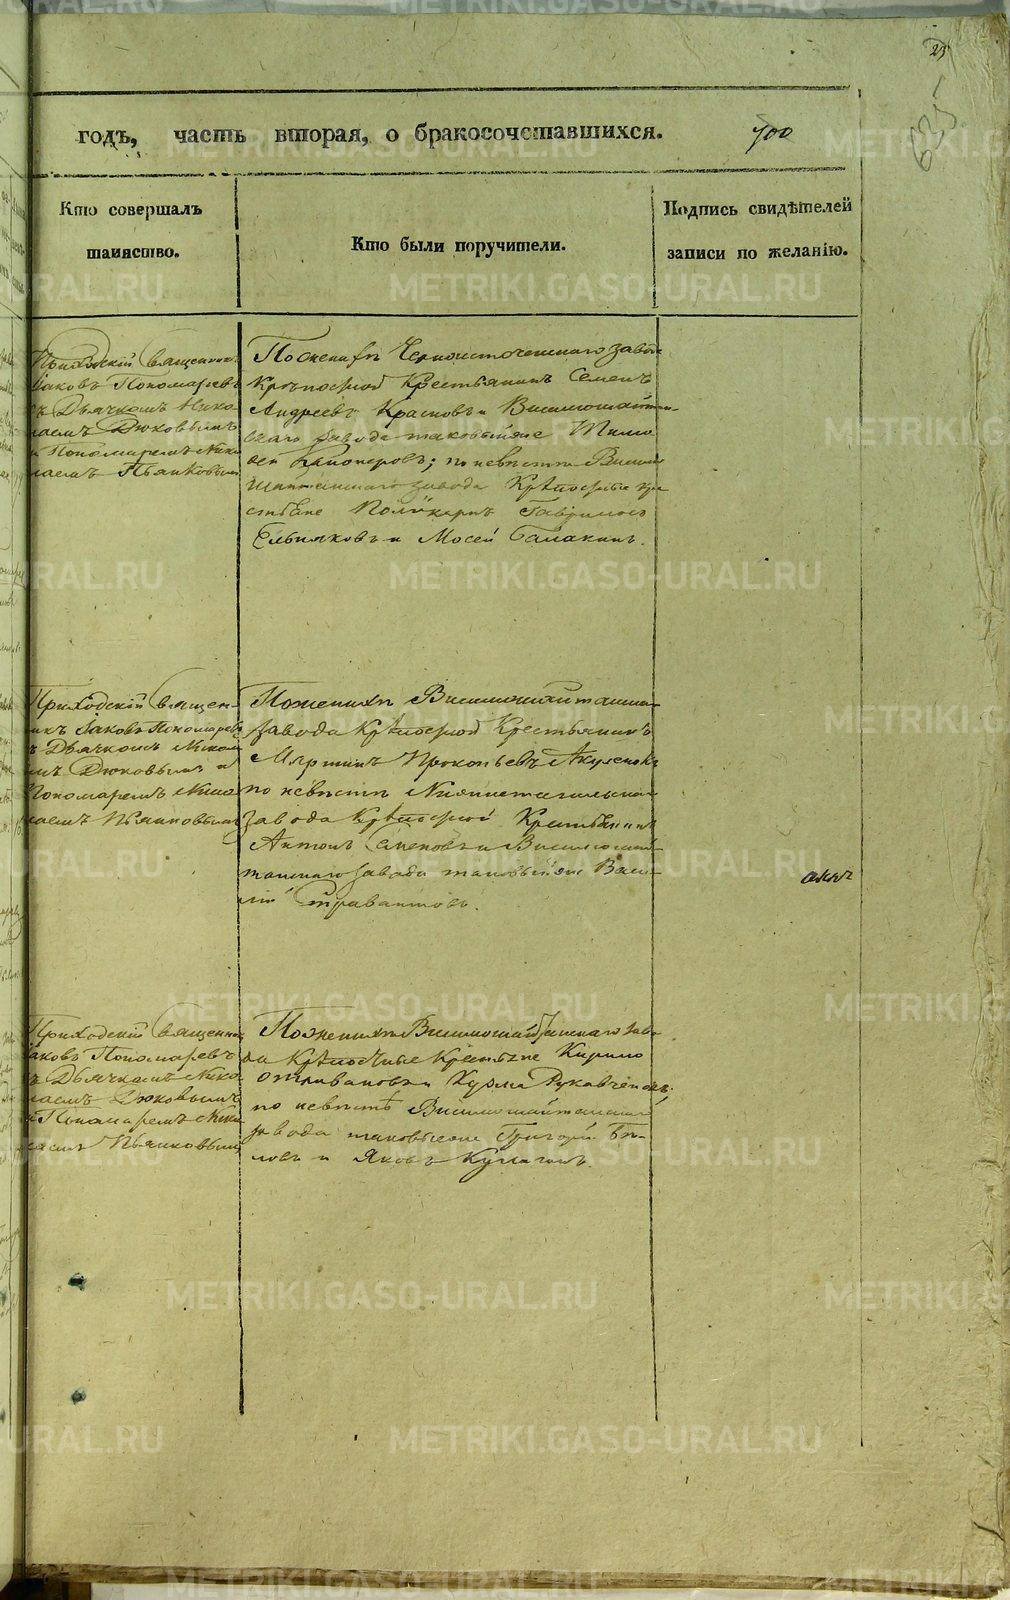 25
635
годъ, часть вторая, о бракосочетавшихся.
700
Кто совершалъ
таинство.
Кто были поручители.
Подпись свидѣтелей
записи по желанію.
Приходскій Священникъ
Іаковъ Пономаревъ
съ Дьячкомъ Нико
лаемъ Дюковымъ
и Пономаремъ Нико
лаемъ Пьянковымъ
По женихѣ Черноисточенскаго завода
крѣпостной крестьянинъ Семенъ
Андреевъ Красновъ и Висимошайтан
скаго завода таковыйже Тимо
фей; по невѣстѣ Висимо
шайтанскаго завода Крѣпостные кре
стьяне Поликарпъ Гавриловъ
и Мосей Балакинъ.
Приходскій Священ
никъ Іаковъ Пономаревъ
съ Дьячкомъ Никола
емъ Дюковымъ и
Пономаремъ Нико
лаемъ Пьянковымъ
По женихѣ Висимошайтанска
завода Крѣпостной Крестьянинъ
Мартинъ Прокопьевъ
по невѣстѣ Нижнетагильска
завода Крѣпостной Крестьянинъ
Антонъ и Висимошай
танскаго завода таковыйже Васи
лій
акъ
Приходскій Священникъ
Іаковъ Пономаревъ
съ Дьячкомъ Нико
лаемъ Дюковымъ
и Пономаремъ Нико
лаемъ Пьянковымъ
По женихѣ Висимошайтанскаго заво
да Крѣпостные Крестьяне Кирило
и Кузма
по невѣстѣ Висимошайтанска
завода таковыеже Григорій Бѣ
ловъ и Яковъ
METRIKI.GASO-URAL.RU